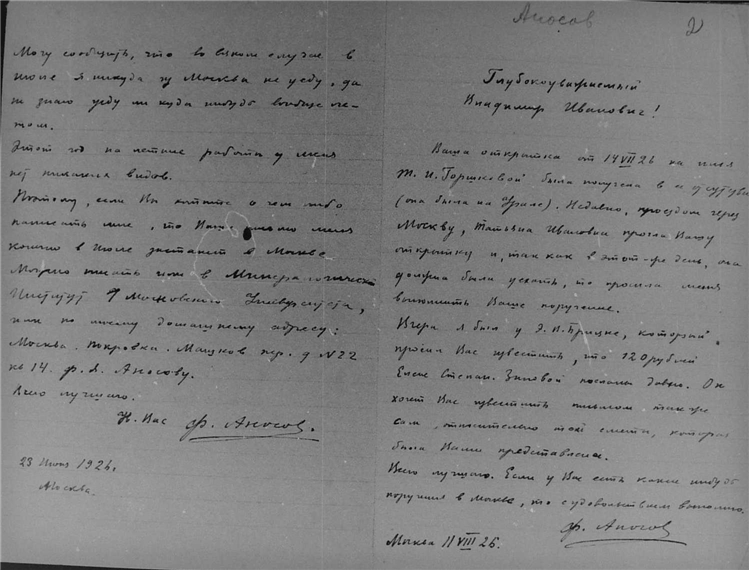 Могу сообщить, что во всяком случае в
июне я никуда из Москвы не уеду, да
и не знаю уеду ли куда нибудь вообще ле-
том.
Этот год на летние работы у меня
нет никаких видов.
Поэтому, если Вы хотите о чем либо
написать мне, то Ваше письмо меня
конечно в июле застанет в Москве.
Можно писать или в Минералогический
Институт 1 Московского Университета,
или по моему домашнему адресу:
Москва. Покровка. Машков пер. д N22
кв 14. Ф. Я. Аносову.
Всего лучшего.
Ув. Вас Ф. Аносов.
23 июня 1926,
Москва.
Аносов
2
Глубокоуважаемый
Владимир Иванович!
Ваша открытка от 14 VII 26 на имя
Т. И. Горшковой была получена в её отсутствии
(она была на Урале). Недавно, проездом через
Москву, Татьяна Ивановна прочла Вашу
открытку и, так как в этот-же день, она
должна была уехать, то просила меня
выполнить Ваше поручение.
Вчера я был у Э. И. Брицке, который
просил Вас известить, что 120 рублей
Елене Степан. Зиновой посланы давно. Он
хочет Вас известить письмом также
сам, относительно той сметы, которая
была Вами представлена.
Всего лучшего. Если у Вас есть какие нибудь
поручения в Москве, то с удовольствием выполню.
Ф. Аносов
Москва 11 VIII 26.